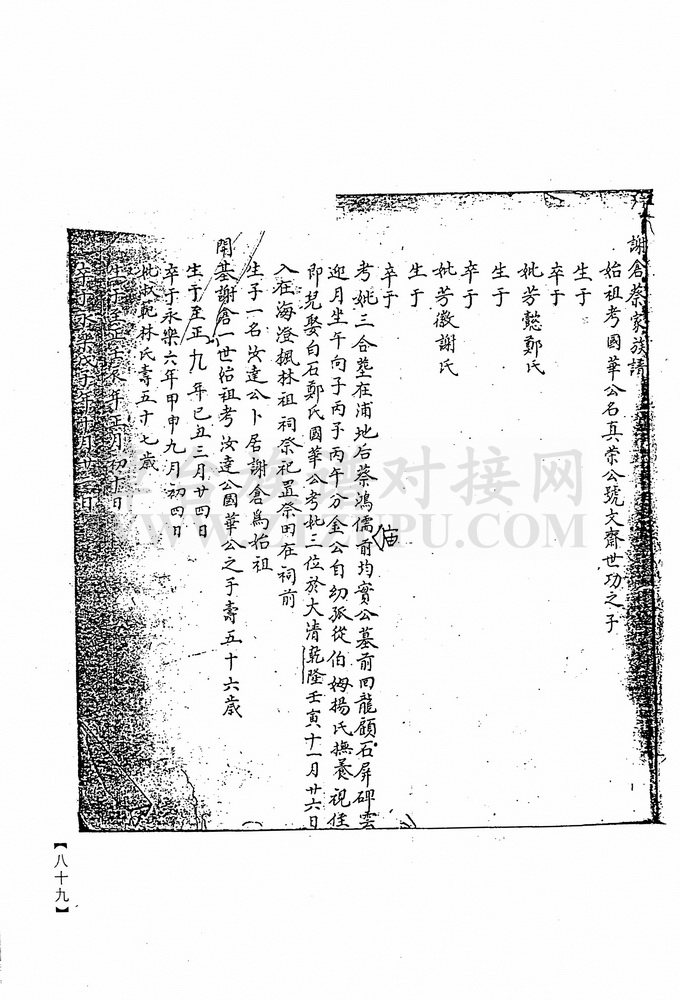 謝倉蔡家族譜
始祖考國華公名真崇公號文齋世功之子
生于
卒于
妣芳懿鄭氏
生于
卒于
妣芳徽謝氏
生于
卒于
考妣三合墓在浦地后蔡鴻儒前均實公墓前回龍顧石屏碑雲
庙
迎月坐午向子丙子丙午分金公自幼孤從伯姆揚氏撫養視侄
即兒娶白石鄭氏國華公考妣三位於大清乾隆壬寅十一月廿六日
入在海澄楓林祖祠祭祀置祭田在祠前
生子一名汝達公卜居謝倉為始祖
開基謝倉一世始祖考汝達公國華公之子壽五十六歲
生于至正九年己丑三月廿四日
卒于永樂六年甲申九月初四日
妣叔範林氏壽五十七歲
生于至正年正月初十日
卒于永樂
【八十九】
台族譜对接网
WWW.ZIZUPU.COM